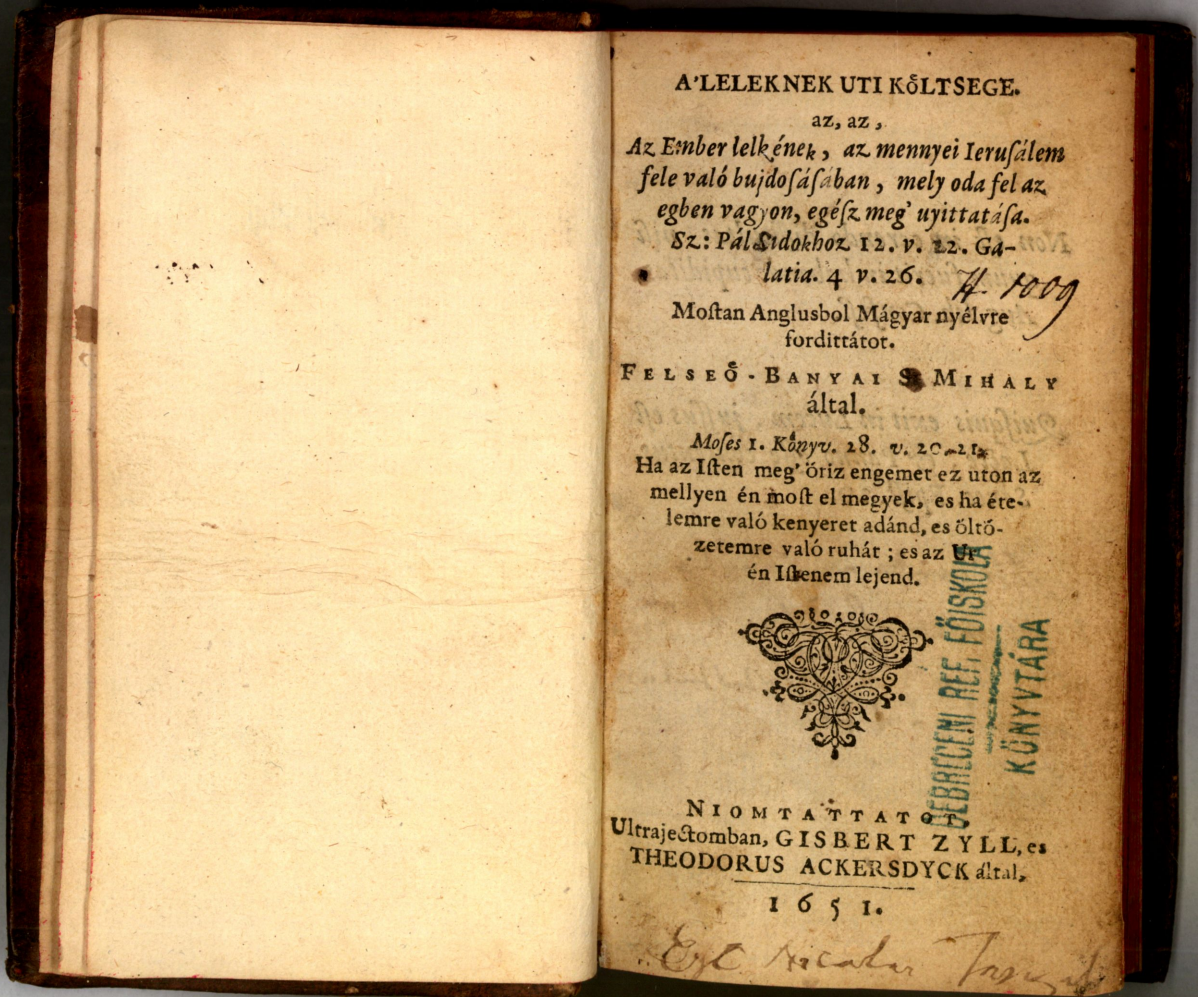 A'LELEKNEK UTI KőLTSEGE.
az, az,
Az Ember lelkének, az mennyei Ieruſálem
fele való bujdoſáſában, mely oda fel az
egben vagyon, egéſz meg' uyittatáſa.
Sz: Pál Sidokhoz 12. v. 22. Ga-
latia. 4 v. 26.
H. 1009
Moſtan Anglusbol Mágyar nyélvre
fordittátot.
FELSEő-BANYAI S. MIHALY
által.
Moſes 1. Kőnyv. 28. v. 20.21.
Ha az Iſten meg' őriz engemet ez uton az
mellyen én moſt el megyek, es ha éte-
lemre való kenyeret adánd, es őltő-
zetemre való ruhát; es az Ur
én Iſtenem lejend.
DEBRECENI REF. FŐISKOLA
KÖNYVTÁRA
NIOMTATTATOT,
Ultrajectomban, GISBERT ZYLL, es
THEODORUS ACKERSDYCK által,
1651.